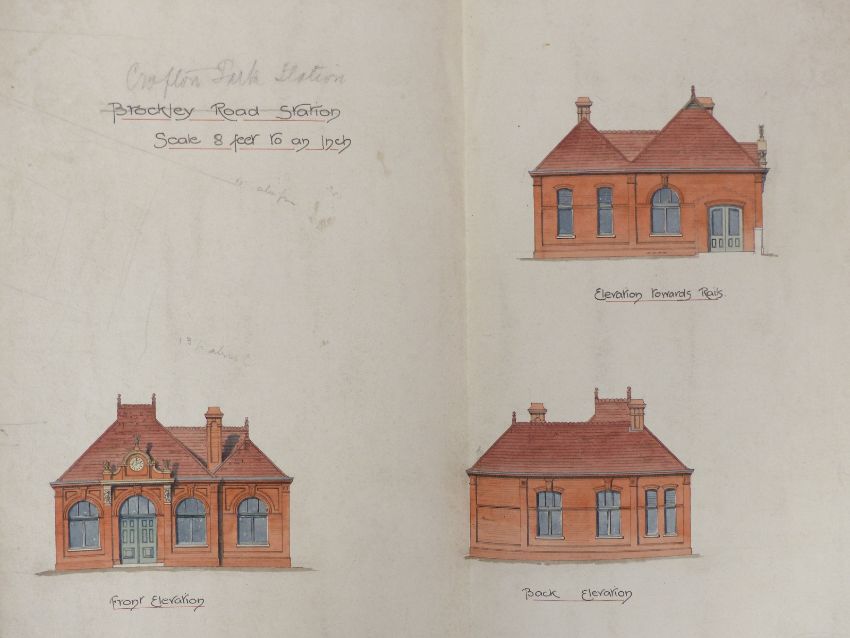 Crofton Park Station
Brockley Road Station
Scale 8 feet to an Inch
Elevation towards Rails
Front Elevation
Back Elevation